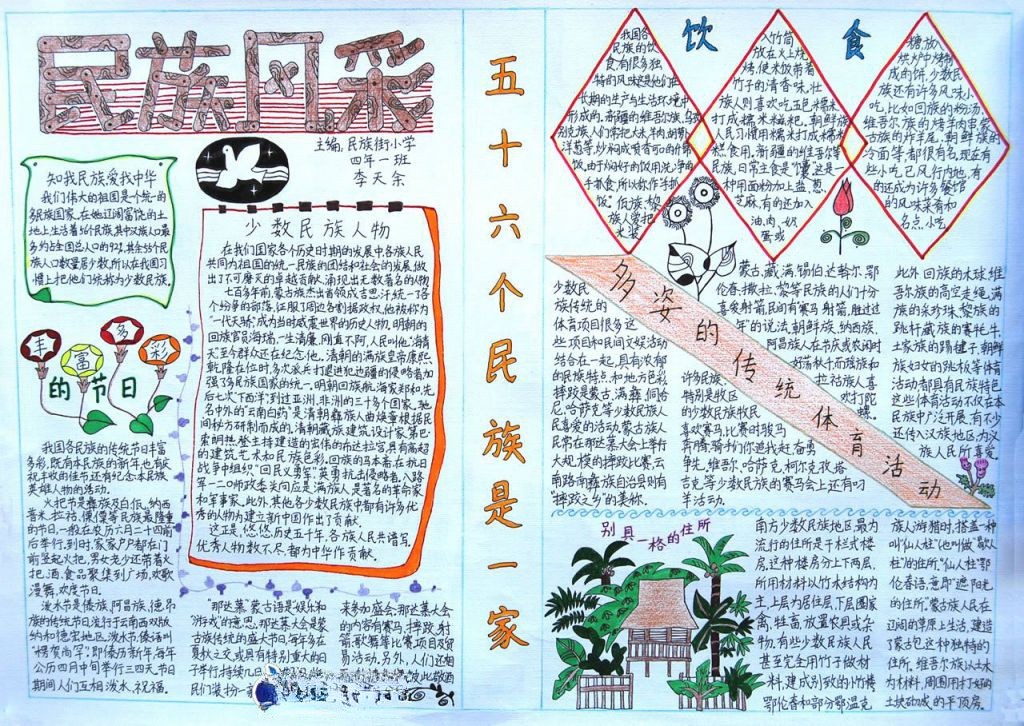 民族风彩
主编:民族街小学
四年一班
李天余
知我民族,爱我中华
我们伟大的祖国是个统一的
多民族国家,在她辽阔富饶的土
地上生活着56个民族,其中汉族人口最
多约占全国总人口的92%,其余55个民
族人口数量居少数,所以在我国习
惯上把他们统称为少数民族。
少数民族人物
在我们国家各个历史时期的发展中各族人民
共同为祖国的统一,民族的团结和社会的发展,做
出了不可磨灭的卓越贡献,涌现出无数著名的人物.
七百多年前,蒙古族杰出首领成吉思汗统一了各
个纷争的部落,征服了周边各割据政权,他被称为
“一代天骄”,成为当时威震世界的历史人物,明朝的
回族官员海瑞,一生清廉,刚直不阿,人民叫他“海青
天”至今群众还在纪念他,清朝的满族皇帝康熙,
乾隆在位时,多次派兵打退犯边疆的侵略者加
强了多民族国家的统一,明朝回族航海家郑和,先
后七次“下西洋”到过亚洲,非洲的三十多个国家,驰
名中外的“云南白药”是清朝彝族人曲焕章根据民
间秘方研制而成的,清朝藏族建筑设计家第巴·
索朗热登主持建造的宏伟的布达拉宫,具有高超
的建筑艺术和民族色彩,回族的马本斋,在抗日
战争中组织“回民义勇军”英勇抗击侵略者,八路
军一二〇师政委关向应是满族人是著名的革命家
和军事家,此外,其他各少数民族中都有许多优
秀的人物为建立新中国作出了贡献.
这正是,悠悠历史五千年,各族人民共谱写,
优秀人物数不尽,都为中华作贡献.
丰富多彩的节日
我国各民族的传统节日丰富
多彩,既有本民族的新年,也有庆
祝丰收的佳节还有纪念本民族
英雄人物的活动。
火把节是彝族及白族,纳西
普米,拉祜,傈僳等民族最隆重
的节日,一般在农历六月二十四前
后举行,到时,家家户户都在门
前竖起火把,男女老少还带着火
把,酒,食品聚集到广场,欢歌
漫舞,欢度节日。
泼水节是傣族,阿昌族,德昂
族的传统节日,流行于云南西双版
纳和德宏地区,泼水节,傣语叫
即傣历新年,每年
公历四月中旬举行三四天,节日
期间人们互相泼水,祝福。
“那达慕”蒙古语是“娱乐和
“游戏”的意思,那达慕大会是蒙
古族传统的盛大节日,每年多在
夏秋之交,或具有特别重大的日
子举行,持续几日
民们装扮一新
来参加盛会,那达慕大会
的内容有赛马,摔跤,射
箭,歌舞等比赛项目及贸
易活动,另外,人们还相
五十六个民族是一家
饮食
我国各
民族的饮
食有很多独
特的风味这是他们在
长期的生产与生活环境中
形成的,新疆的维吾尔族,乌兹
别克族人们常把大米,羊肉,胡萝卜
洋葱等,炒焖成喷香可口的什锦
饭,由于焖好的饭用洗净的
手抓食,所以称作“手抓
饭”。佤族,黎
族人爱把
米装
入竹筒
放在火上烧
烤,使米饭带着
竹子的清香味,壮
族人则喜欢吃五色糯米
打成糯米糍粑。朝鲜族
人民习惯用糯米打成糯米
糕食用,新疆的维吾尔等
民族,日常主食是“馕”这是一
种用面粉加上盐,葱,
芝麻,有的还加入
油,肉,奶
蛋或
糖,放入
烘炉中烤制
成的饼,少数民
族还有许多风味小
吃,比如回族的粉汤,
维吾尔族的烤羊肉串,蒙
古族的炸羊尾,朝鲜族的
冷面等,都很有名,现在有
些小吃,已风行内地,有
的还成为许多餐馆
的风味菜肴和
名点小吃
多姿的传统体育活动
少数民
族传统的
体育项目很多,这
些项目和民间文娱活动
结合在一起,具有浓郁
的民族特色,和地方色彩
摔跤是蒙古,满,彝,侗,哈
尼,哈萨克等少数民族人
民喜爱的活动,蒙古族人
民常在那达慕大会上举行
大规模的摔跤比赛,云
南路南彝族自治县则有
“摔跤之乡”的美称。
许多民族,
特别是牧区
的少数民族牧民
喜欢赛马,比赛时骏马
奔腾,骑手们你追我赶,奋勇
争先,维吾尔,哈萨克,柯尔克孜,塔
吉克等少数民族的赛马会上还有叼
羊活动。
蒙古,藏,满,锡伯,达斡尔,鄂
伦春,撒拉,黎等民族的人们十分
喜爱射箭,民间有赛马射箭,胜过过
年”的说法,朝鲜族,纳西族,
阿昌族人在节庆或农闲时
好荡秋千而瑶族和
拉祜族人喜
欢打陀
螺。
此外,回族的木球,维
吾尔族的高空走绳,满
族的采珍珠,黎族的
跳杆,藏族的赛牦牛,
土家族的踢毽子,朝鲜
族妇女的跳板等体育
活动都具有民族特色
这些体育活动不仅在本
民族中广泛开展,有不少
还传入汉族地区,为汉
族人民所喜爱。
别具一格的住所
南方少数民族地区最为
流行的住所是干栏式楼
房,这种楼房分上下两层,
所用材料以竹木结构为
主,上层为居住层,下层圈家
禽,牲畜,放置农具或杂
物,有些少数民族人民
甚至完全用竹子做材
料,建成别致的小竹楼
鄂伦春和部分鄂温克
族人游猎时,搭盖一种
叫“仙人柱”(也叫做“歇人
柱”)的住所,“仙人柱”鄂
伦春语,意即“遮阳光
的住所,蒙古族人民在
辽阔的草原上生活,建造
了蒙古包这种独特的
住所,维吾尔族以土木
为材料,周围用打好的
土块砌成的平顶房。